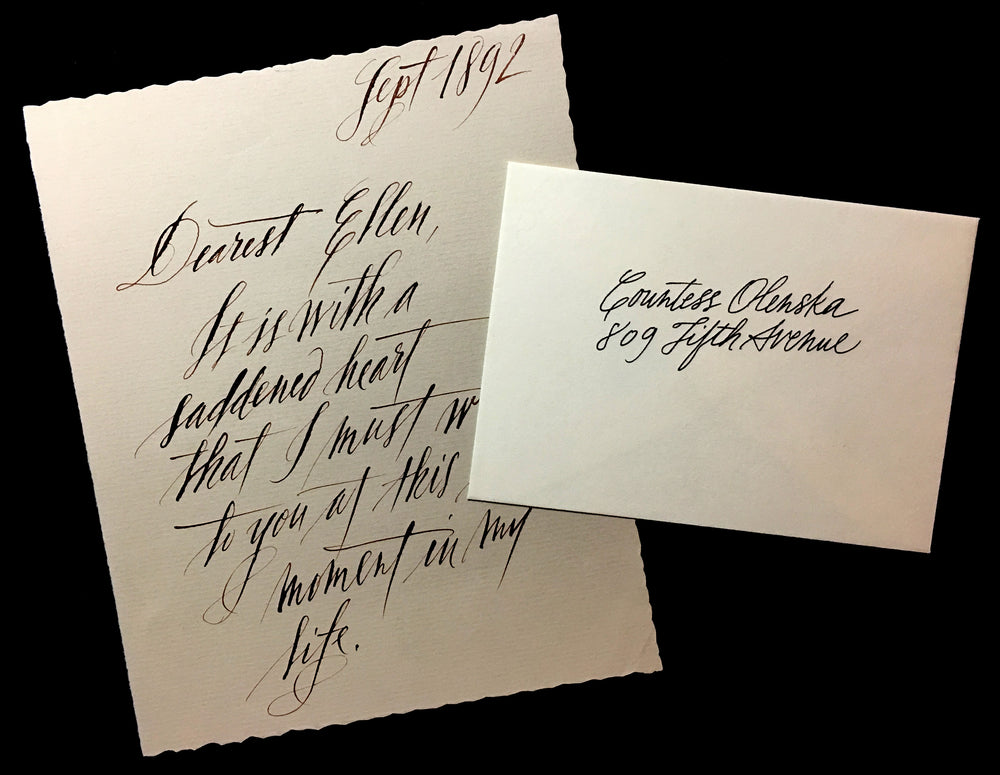 Sept 1892
Dearest Ellen,
It is with a
saddened heart
that I must
to you at this
moment in my
life.
Countess Olenska
809 Fifth Avenue